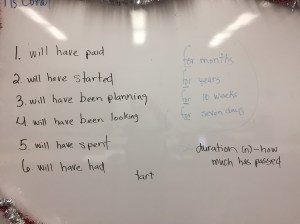 1. will have paid
2. will have started
3. will have been planning
4 will have been looking
5. will have spent
6 will have had
for months
for years
for 10 weeks
for seven days
duration (n) - how
much has passed
tart